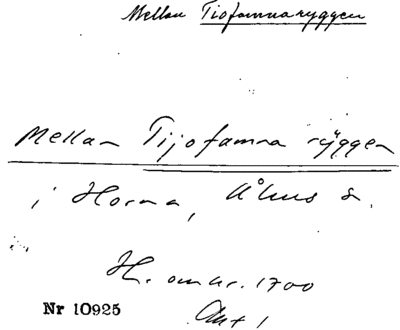 Mellan Tiofamnaryggen
Mellan Tijofamna ryggen
i Horna, Åhus sn.
H. omkr. 1700
Nr 10925
Akt 1